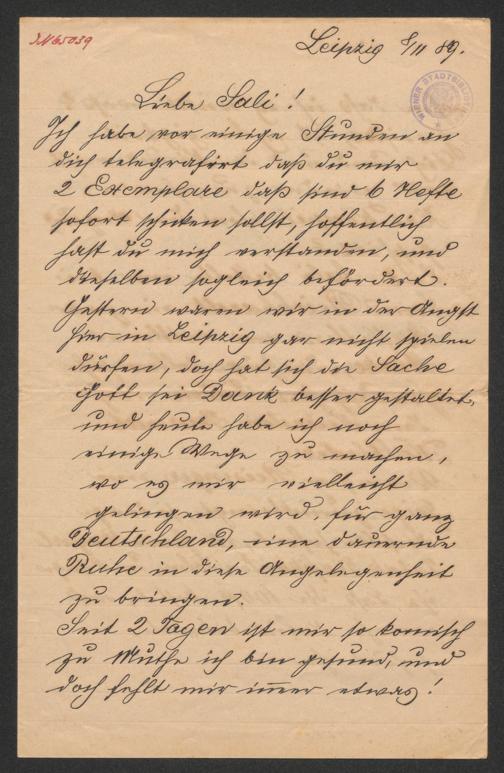 JN 65039
Leipzig 8/11 89.
WIENER STADTBIBLIOTHEK
Liebe Sali!
Ich habe vor einige Stunden an
dich telegrafirt daß du mir
2 Exemplare daß sind 6 Hefte
sofort schicken sollst, hoffentlich
hast du mich verstanden, und
dieselben sogleich befördert.
Gestern waren wir in der Angst
hier in Leipzig gar nicht spielen
dürfen, doch hat sich die Sache
Gott sei Dank besser gestaltet,
und heute habe ich noch
einige Wege zu machen,
wo es mir vielleicht
gelingen wird, für ganz
Deutschland, eine dauernde
Ruhe in diese Angelegenheit
zu bringen.
Seit 2 Tagen ist mir so komisch
zu Muthe ich bin gesund, und
doch fehlt mir im̅er etwas!